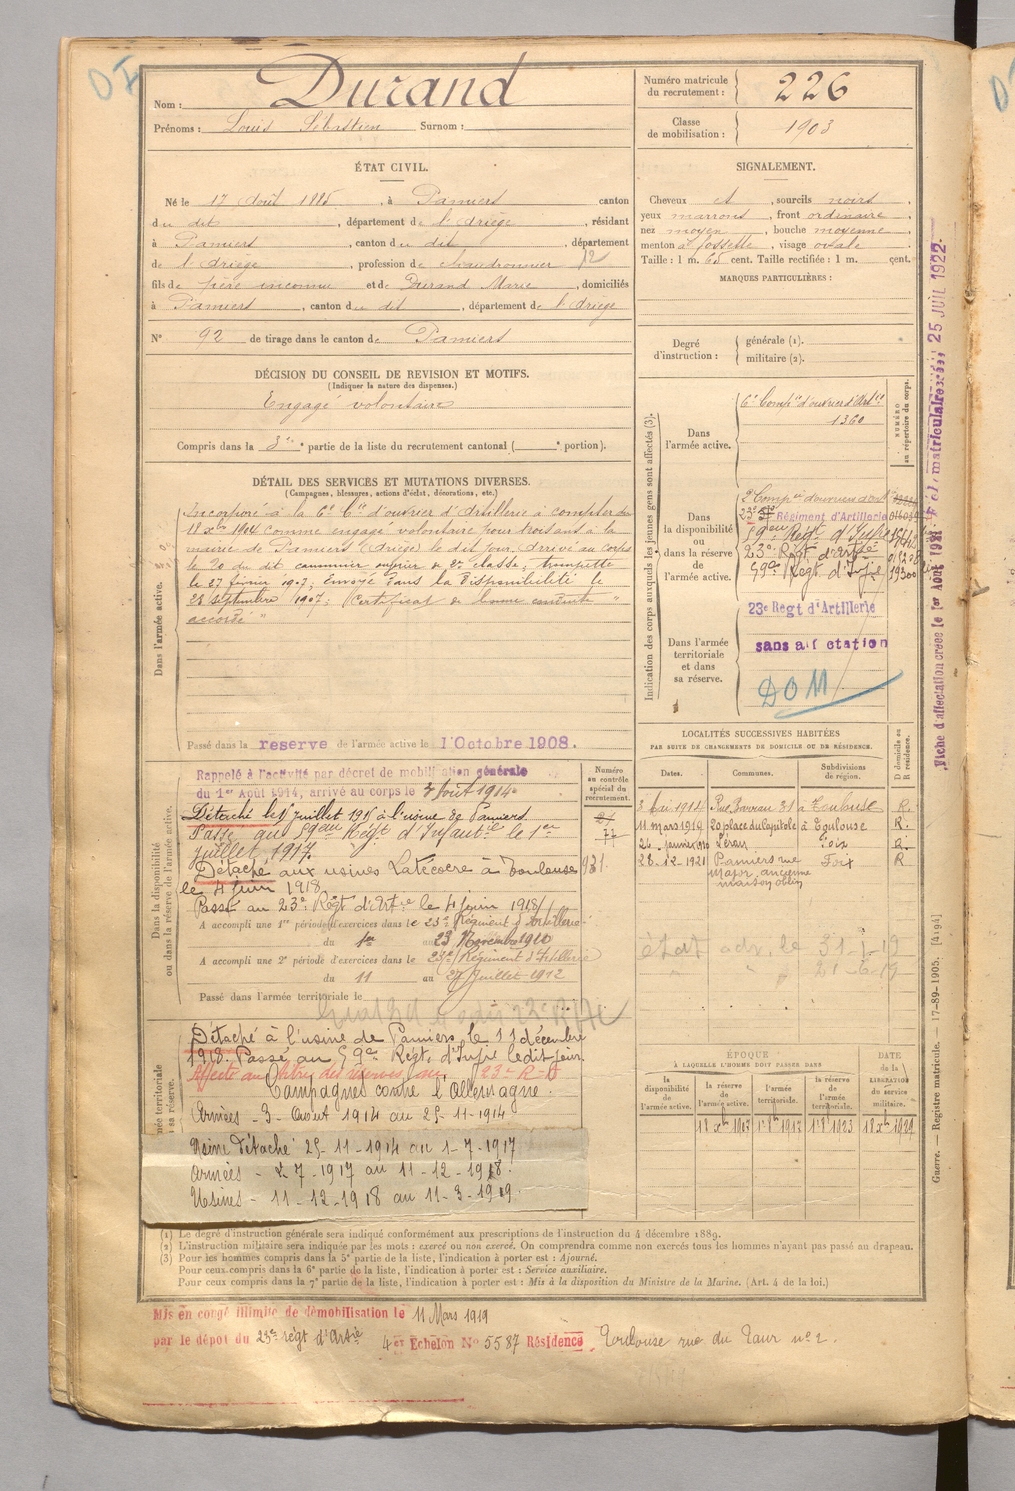 Nom : Durand
Prénoms : Louis Sébastien Surnom :
Numéro matricule du recrutement : 226
Classe de mobilisation : 1903
ÉTAT CIVIL.
Né le 17 Août 1885, à Pamiers canton
du dit, département de l'Ariège, résidant
à Pamiers, canton du dit, département
de l'Ariège, profession de chaudronnier 12
fils de père inconnu et de Durand Marie, domiciliés
à Pamiers, canton du dit, département de l'Ariège
N° 92 de tirage dans le canton de Pamiers
SIGNALEMENT.
Cheveux et, sourcils noirs,
yeux marrons, front ordinaire,
nez moyen, bouche moyenne,
menton à fossette, visage ovale.
Taille : 1 m. 65 cent. Taille rectifiée : 1 m. cent.
MARQUES PARTICULIÈRES :
Degré d'instruction : générale (1).
militaire (2).
DÉCISION DU CONSEIL DE REVISION ET MOTIFS.
(Indiquer la nature des dispenses.)
Engagé volontaire
Compris dans la 3e partie de la liste du recrutement cantonal ( e portion).
DÉTAIL DES SERVICES ET MUTATIONS DIVERSES.
(Campagnes, blessures, actions d'éclat, décorations, etc.)
Dans l'armée active.
Incorporé à la 6e Cie d'ouvrier d'Artillerie à compter du
18 Xbre 1904 comme engagé volontaire pour trois ans à la
mairie de Pamiers (Ariège) le dit jour. Arrivé au Corps
le 20 du dit canonnier ouvrier de 2e classe; trompette
le 27 février 1907; Envoyé dans la Disponibilité le
28 septembre 1907; Certificat de bonne conduite "
accordé "
Passé dans la réserve de l'armée active le 1 Octobre 1908.
Indication des corps auxquels les jeunes gens sont affectés (3).
NUMÉRO au répertoire du corps.
Dans l'armée active.
6e Compie d'ouvriers d'Artie
1360
Dans la disponibilité ou dans la réserve de l'armée active.
2e Compie d'ouvriers d'Art
23e Régiment d'Artillerie
59eme Régt d'Infie
23e Régt d'Artie
59e Régt d'Infie
Dans l'armée territoriale et dans sa réserve.
23e Régt d'Artillerie
sans affectation
DOM
Fiche d'affectation créée le 1er Août 1921.
matriculaire 25 JUIL 1922.
Dans la disponibilité ou dans la réserve de l'armée active.
Numéro au contrôle spécial du recrutement.
Rappelé à l'activité par décret de mobilisation générale
du 1er Août 1914, arrivé au corps le 3 Août 1914
Détaché le juillet 1915 à l'usine de Pamiers
Passé au 59eme Régt d'Infantie le 1er
juillet 1917.
Détaché aux usines Latécoère à Toulouse
le 4 juin 1918
921
Passé au 23e Régt d'Artie le 4 juin 1918
A accompli une 1re période d'exercices dans le 23e Régiment d'Artillerie
du 1er au 23 Novembre 1910
A accompli une 2e période d'exercices dans le 23e Régiment d'Artillerie
du 11 au 27 Juillet 1912
Passé dans l'armée territoriale le
LOCALITÉS SUCCESSIVES HABITÉES
PAR SUITE DE CHANGEMENTS DE DOMICILE OU DE RÉSIDENCE.
Dates. Communes. Subdivisions de région. D domicile ou R résidence.
3 Mai 1914 Rue Bayeau 31 à Toulouse R.
11 mars 1919 20 place du Capitole à Toulouse R.
24 janvier 1920 Léran Foix R.
28-12-1921 Pamiers rue Major, ancienne maison Foix R
état adr. le 31-1-12
Détaché à l'usine de Pamiers le 11 décembre
1918. Passé au 59e Régt. d'Infie ledit jour
Affecté au titre des réserves au 23e R-A
Campagnes contre l'Allemagne.
Armées - 3 - Août 1914 au 25-11-1914
Usine Détaché 25-11-1914 au 1-7-1917
Armées - 2-7-1917 au 11-12-1918.
Usines - 11-12-1918 au 11-3-1919.
ÉPOQUE
À LAQUELLE L'HOMME DOIT PASSER DANS
la disponibilité de l'armée active. la réserve de l'armée active. l'armée territoriale. la réserve de l'armée territoriale.
DATE de la LIBÉRATION du service militaire.
18 Xbre 1907 1er 8bre 1917 1er 8bre 1923 18 Xbre 1929
(1) Le degré d'instruction générale sera indiqué conformément aux prescriptions de l'instruction du 4 décembre 1889.
(2) L'instruction militaire sera indiquée par les mots : exercé ou non exercé. On comprendra comme non exercés tous les hommes n'ayant pas passé au drapeau.
(3) Pour les hommes compris dans la 5e partie de la liste, l'indication à porter est : Ajourné.
Pour ceux compris dans la 6e partie de la liste, l'indication à porter est : Service auxiliaire.
Pour ceux compris dans la 7e partie de la liste, l'indication à porter est : Mis à la disposition du Ministre de la Marine. (Art. 4 de la loi.)
Guerre. — Registre matricule. — 17-89-1905. [4194]
Mis en congé illimité de démobilisation le 11 Mars 1919
par le dépôt du 23e régt d'Artie 4er Echelon N° 5587 Résidence Toulouse rue du Taur n° 2.